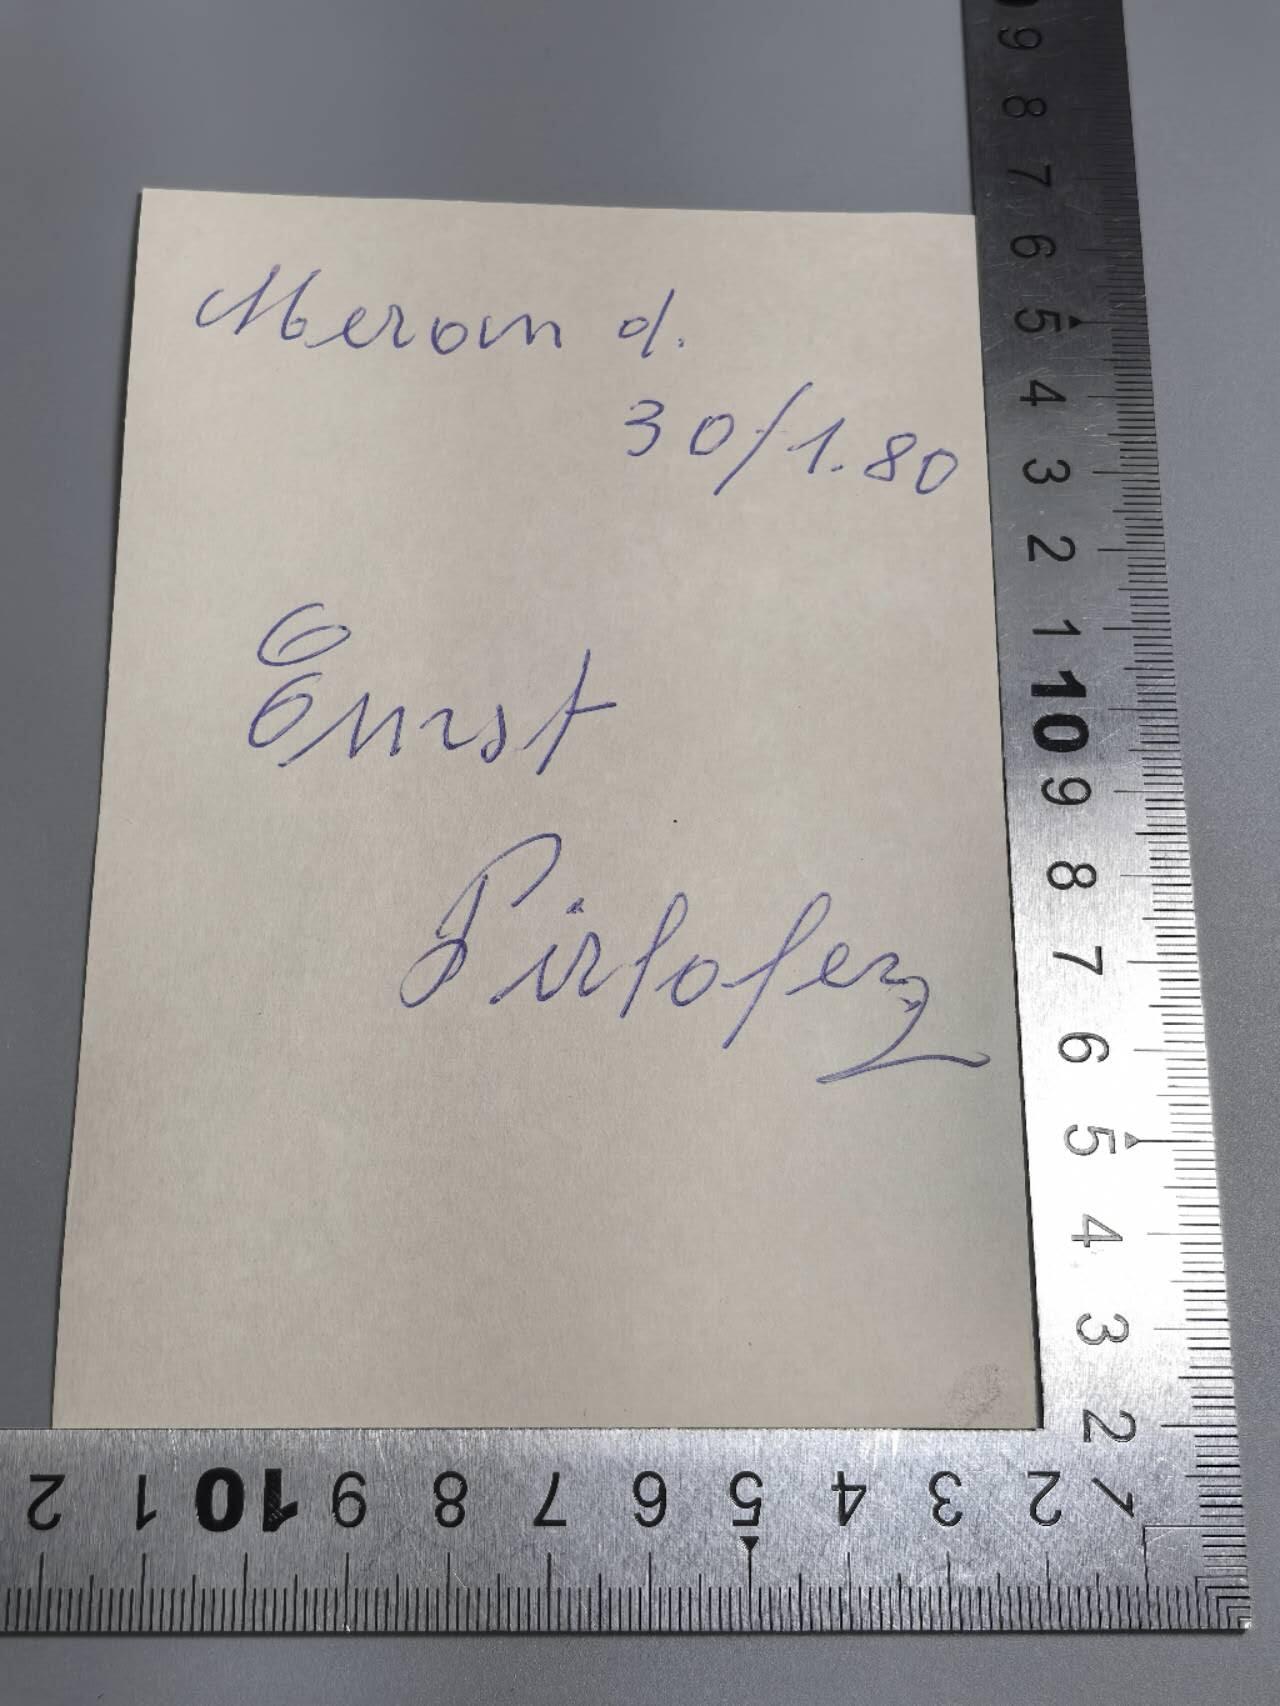 Meran d.
30/1.80
Ernst
Pirhofer
9
8
7
6
5
4
3
2
1
10
9
8
7
6
5
4
3
2
2 1 10 9 8 7 6 5 4 3 2 1